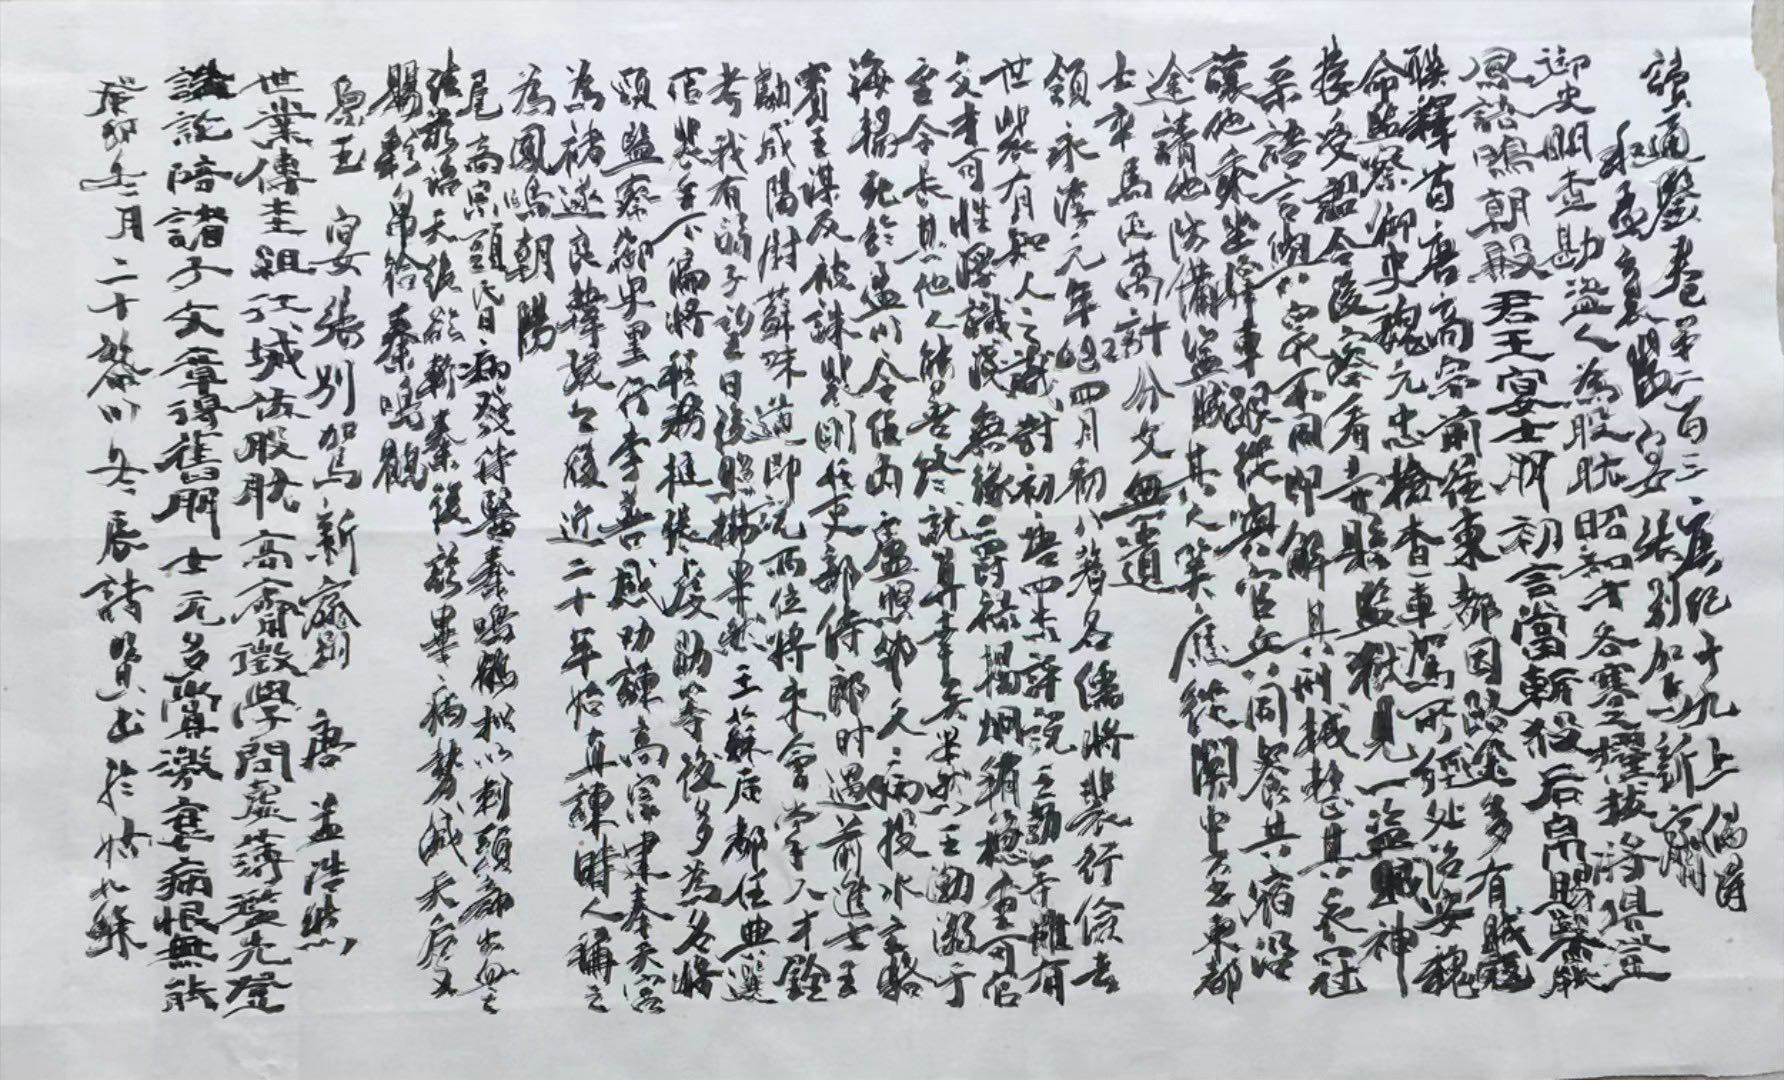 讀通鑒卷第二百三唐紀十九上偶得
和孟襄陽宴張別駕新齋
御史明查勘盜人為股肱昭知才各寒之擢拔將俱登
鳳語鳴朝殿君王宴士朋初言當斬殺后帛賜醫能
聯釋首唐高宗前往東都因路途多有賊寇
命監察御史魏元忠檢查車駕所經处治安魏
接受詔令後察看赤縣監獄見一盜賊神
采語言與眾不同即解其刑械整其衣冠
讓他乘坐驛車跟從與官兵同餐共宿沿
途請他防備盜賊其人笑應從關中至東都
士卒馬匹萬計分文無遺
領永淳元年682四月初八著名儒將裴行儉去
世裴有知人之識對初唐四杰評說王勃等雖有
文才可惜浮識淺無緣爵祿楊炯稍穩重可官
至令長其他人能善終就算幸矣果然王勃溺于
海楊死於盈川令任內盧照鄰久病投水立駱
賓王謀反被誅裴剛任吏部侍郎时遇前進士王
勮咸陽尉蘇味道即說兩位將來會掌人才銓
考我有弱子望日後照拂果然王蘇居都任典選
官裴手下偏將程務挺張虔勖等後多為名將
頸監察御史里行李善感勸諫高宗建奉天宮
為褚遂良韓瑗之後近二十年始直諫時人稱之
為鳳鳴朝陽
尾高宗頭氏日病发待醫秦鳴鶴拟以刺頭部出血之
法救治天后欲斬秦後診畢病勢減天后又
賜彩帛給秦鳴鶴
原玉 宴張別駕新齋 唐 孟浩然
世業傳圭組江城佐股肱高齋徵學問虛薄濫先登
講論陪諸子文章得舊朋士元多賞激衰病恨無能
癸卯年 月二十 於 冬辰詩賢出於 九